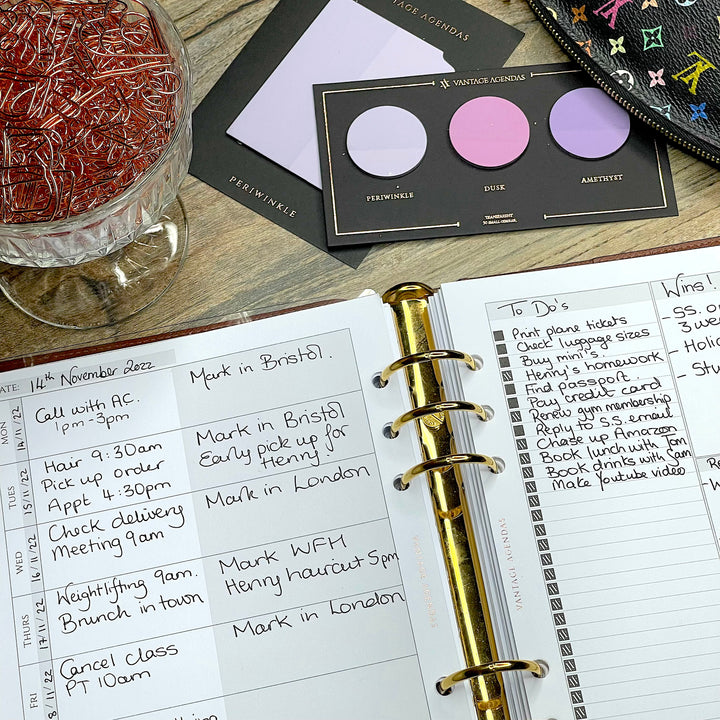 VANTAGE AGENDAS
PERIWINKLE
VANTAGE AGENDAS
PERIWINKLE
DUSK
AMETHYST
TRANSPARENT
DATE: 14th November 2022
MON
14/11/22
Call with AC.
1pm-3pm
Mark in Bristol.
TUES
15/11/22
Hair 9:30am
Pick up order
Appt 4:30pm
Mark in Bristol
Early pick up for
Henny.
WED
16/11/22
Check delivery
Meeting 9am
Mark in London
THURS
17/11/22
Weightlifting 9am.
Brunch in town
Mark WFH
Henny haircut 5pm
FRI
8/11/22
Cancel class
PT 10am
Mark in London
VANTAGE AGENDAS
To Do's
Print plane tickets
Check luggage sizes
Buy mini's.
Henny's homework
Find passport.
Pay credit card
Renew gym membership
Reply to S.S. email
Chase up Amazon
Book lunch with Tom
Book drinks with Sam
Make Youtube video
Wins!